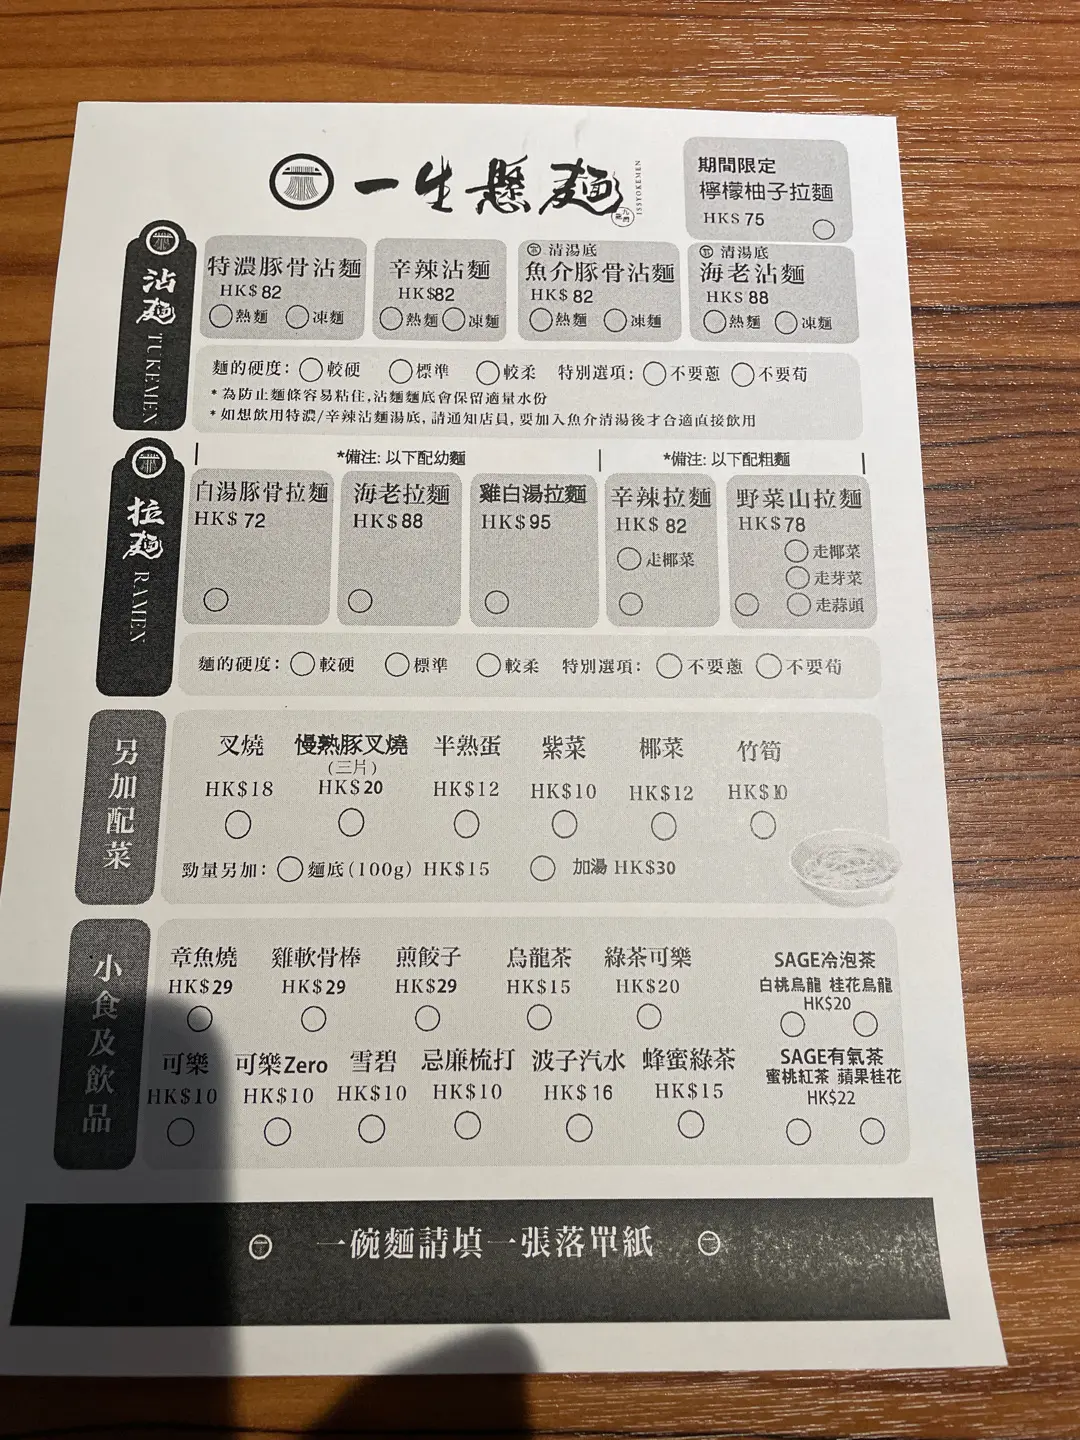 一生懸麵
ISSYOKEMEN
期間限定
檸檬柚子拉麵
HK$ 75
沾麵 TUKEMEN
特濃豚骨沾麵
HK$ 82
熱麵 凍麵
辛辣沾麵
HK$82
熱麵 凍麵
清湯底
魚介豚骨沾麵
HK$ 82
熱麵 凍麵
清湯底
海老沾麵
HK$ 88
熱麵 凍麵
麵的硬度: 較硬 標準 較柔 特別選項: 不要蔥 不要筍
*為防止麵條容易粘住,沾麵麵底會保留適量水份
*如想飲用特濃/辛辣沾麵湯底, 請通知店員, 要加入魚介清湯後才合適直接飲用
拉麵 RAMEN
*備注: 以下配幼麵
*備注: 以下配粗麵
白湯豚骨拉麵
HK$ 72
海老拉麵
HK$ 88
雞白湯拉麵
HK$ 95
辛辣拉麵
HK$ 82
走椰菜
野菜山拉麵
HK$ 78
走椰菜
走芽菜
走蒜頭
麵的硬度: 較硬 標準 較柔 特別選項: 不要蔥 不要筍
另加配菜
叉燒 慢熟豚叉燒 半熟蛋 紫菜 椰菜 竹筍
(三片)
HK$18 HK$20 HK$12 HK$10 HK$12 HK$10
勁量另加: 麵底(100g) HK$15 加湯 HK$30
小食及飲品
章魚燒 雞軟骨棒 煎餃子 烏龍茶 綠茶可樂
HK$29 HK$29 HK$29 HK$15 HK$20
SAGE冷泡茶
白桃烏龍 桂花烏龍
HK$20
可樂 可樂Zero 雪碧 忌廉梳打 波子汽水 蜂蜜綠茶
HK$10 HK$10 HK$10 HK$10 HK$16 HK$15
SAGE有氣茶
蜜桃紅茶 蘋果桂花
HK$22
一碗麵請填一張落單紙